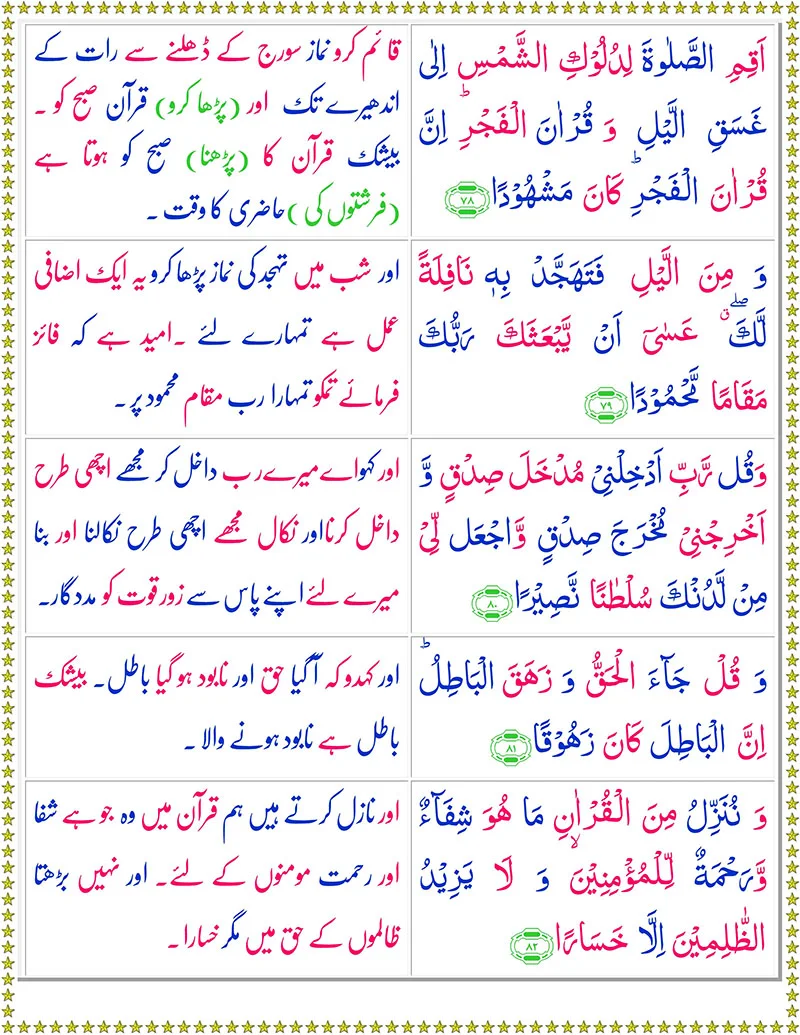 اَقِمِ الصَّلٰوةَ لِدُلُوْكِ الشَّمْسِ اِلٰی
غَسَقِ الَّیْلِ وَ قُرْاٰنَ الْفَجْرِؕ اِنَّ
قُرْاٰنَ الْفَجْرِ كَانَ مَشْهُوْدًا ﴿۷۸﴾
قائم کرو نماز سورج کے ڈھلنے سے رات کے
اندھیرے تک اور (پڑھا کرو) قرآن صبح کو ۔
بیشک قرآن کا (پڑھنا) صبح کو ہوتا ہے
(فرشتوں کی) حاضری کا وقت ۔
وَ مِنَ الَّیْلِ فَتَهَجَّدْ بِهٖ نَافِلَةً
لَّكَ ۖۗ عَسٰۤی اَنْ یَّبْعَثَكَ رَبُّكَ
مَقَامًا مَّحْمُوْدًا ﴿۷۹﴾
اور شب میں تہجد کی نماز پڑھا کرو یہ ایک اضافی
عمل ہے تمہارے لئے ۔ امید ہے کہ فائز
فرمائے تمکو تمہارا رب مقام محمود پر ۔
وَقُل رَّبِّ اَدْخِلْنِیْ مُدْخَلَ صِدْقٍ وَّ
اَخْرِجْنِیْ مُخْرَجَ صِدْقٍ وَّاجْعَل لِّیْ
مِنْ لَّدُنْكَ سُلْطٰنًا نَّصِیْرًا ﴿۸۰﴾
اور کہو اے میرے رب داخل کر مجھے اچھی طرح
داخل کرنا اور نکال مجھے اچھی طرح نکالنا اور بنا
میرے لئے اپنے پاس سے زور قوت کو مددگار۔
وَ قُلْ جَآءَ الْحَقُّ وَ زَهَقَ الْبَاطِلُؕ
اِنَّ الْبَاطِلَ كَانَ زَهُوْقًا ﴿۸۱﴾
اور کہدو کہ آگیا حق اور نابود ہوگیا باطل۔ بیشک
باطل ہے نابود ہونے والا ۔
وَ نُنَزِّلُ مِنَ الْقُرْاٰنِ مَا هُوَ شِفَآءٌ
وَّرَحْمَةٌ لِّلْمُؤْمِنِیْنَ ۙ وَ لَا یَزِیْدُ
الظّٰلِمِیْنَ اِلَّا خَسَارًا ﴿۸۲﴾
اور نازل کرتے ہیں ہم قرآن میں وہ جو ہے شفا
اور رحمت مومنوں کے لئے۔ اور نہیں بڑھتا
ظالموں کے حق میں مگر خسارا ۔